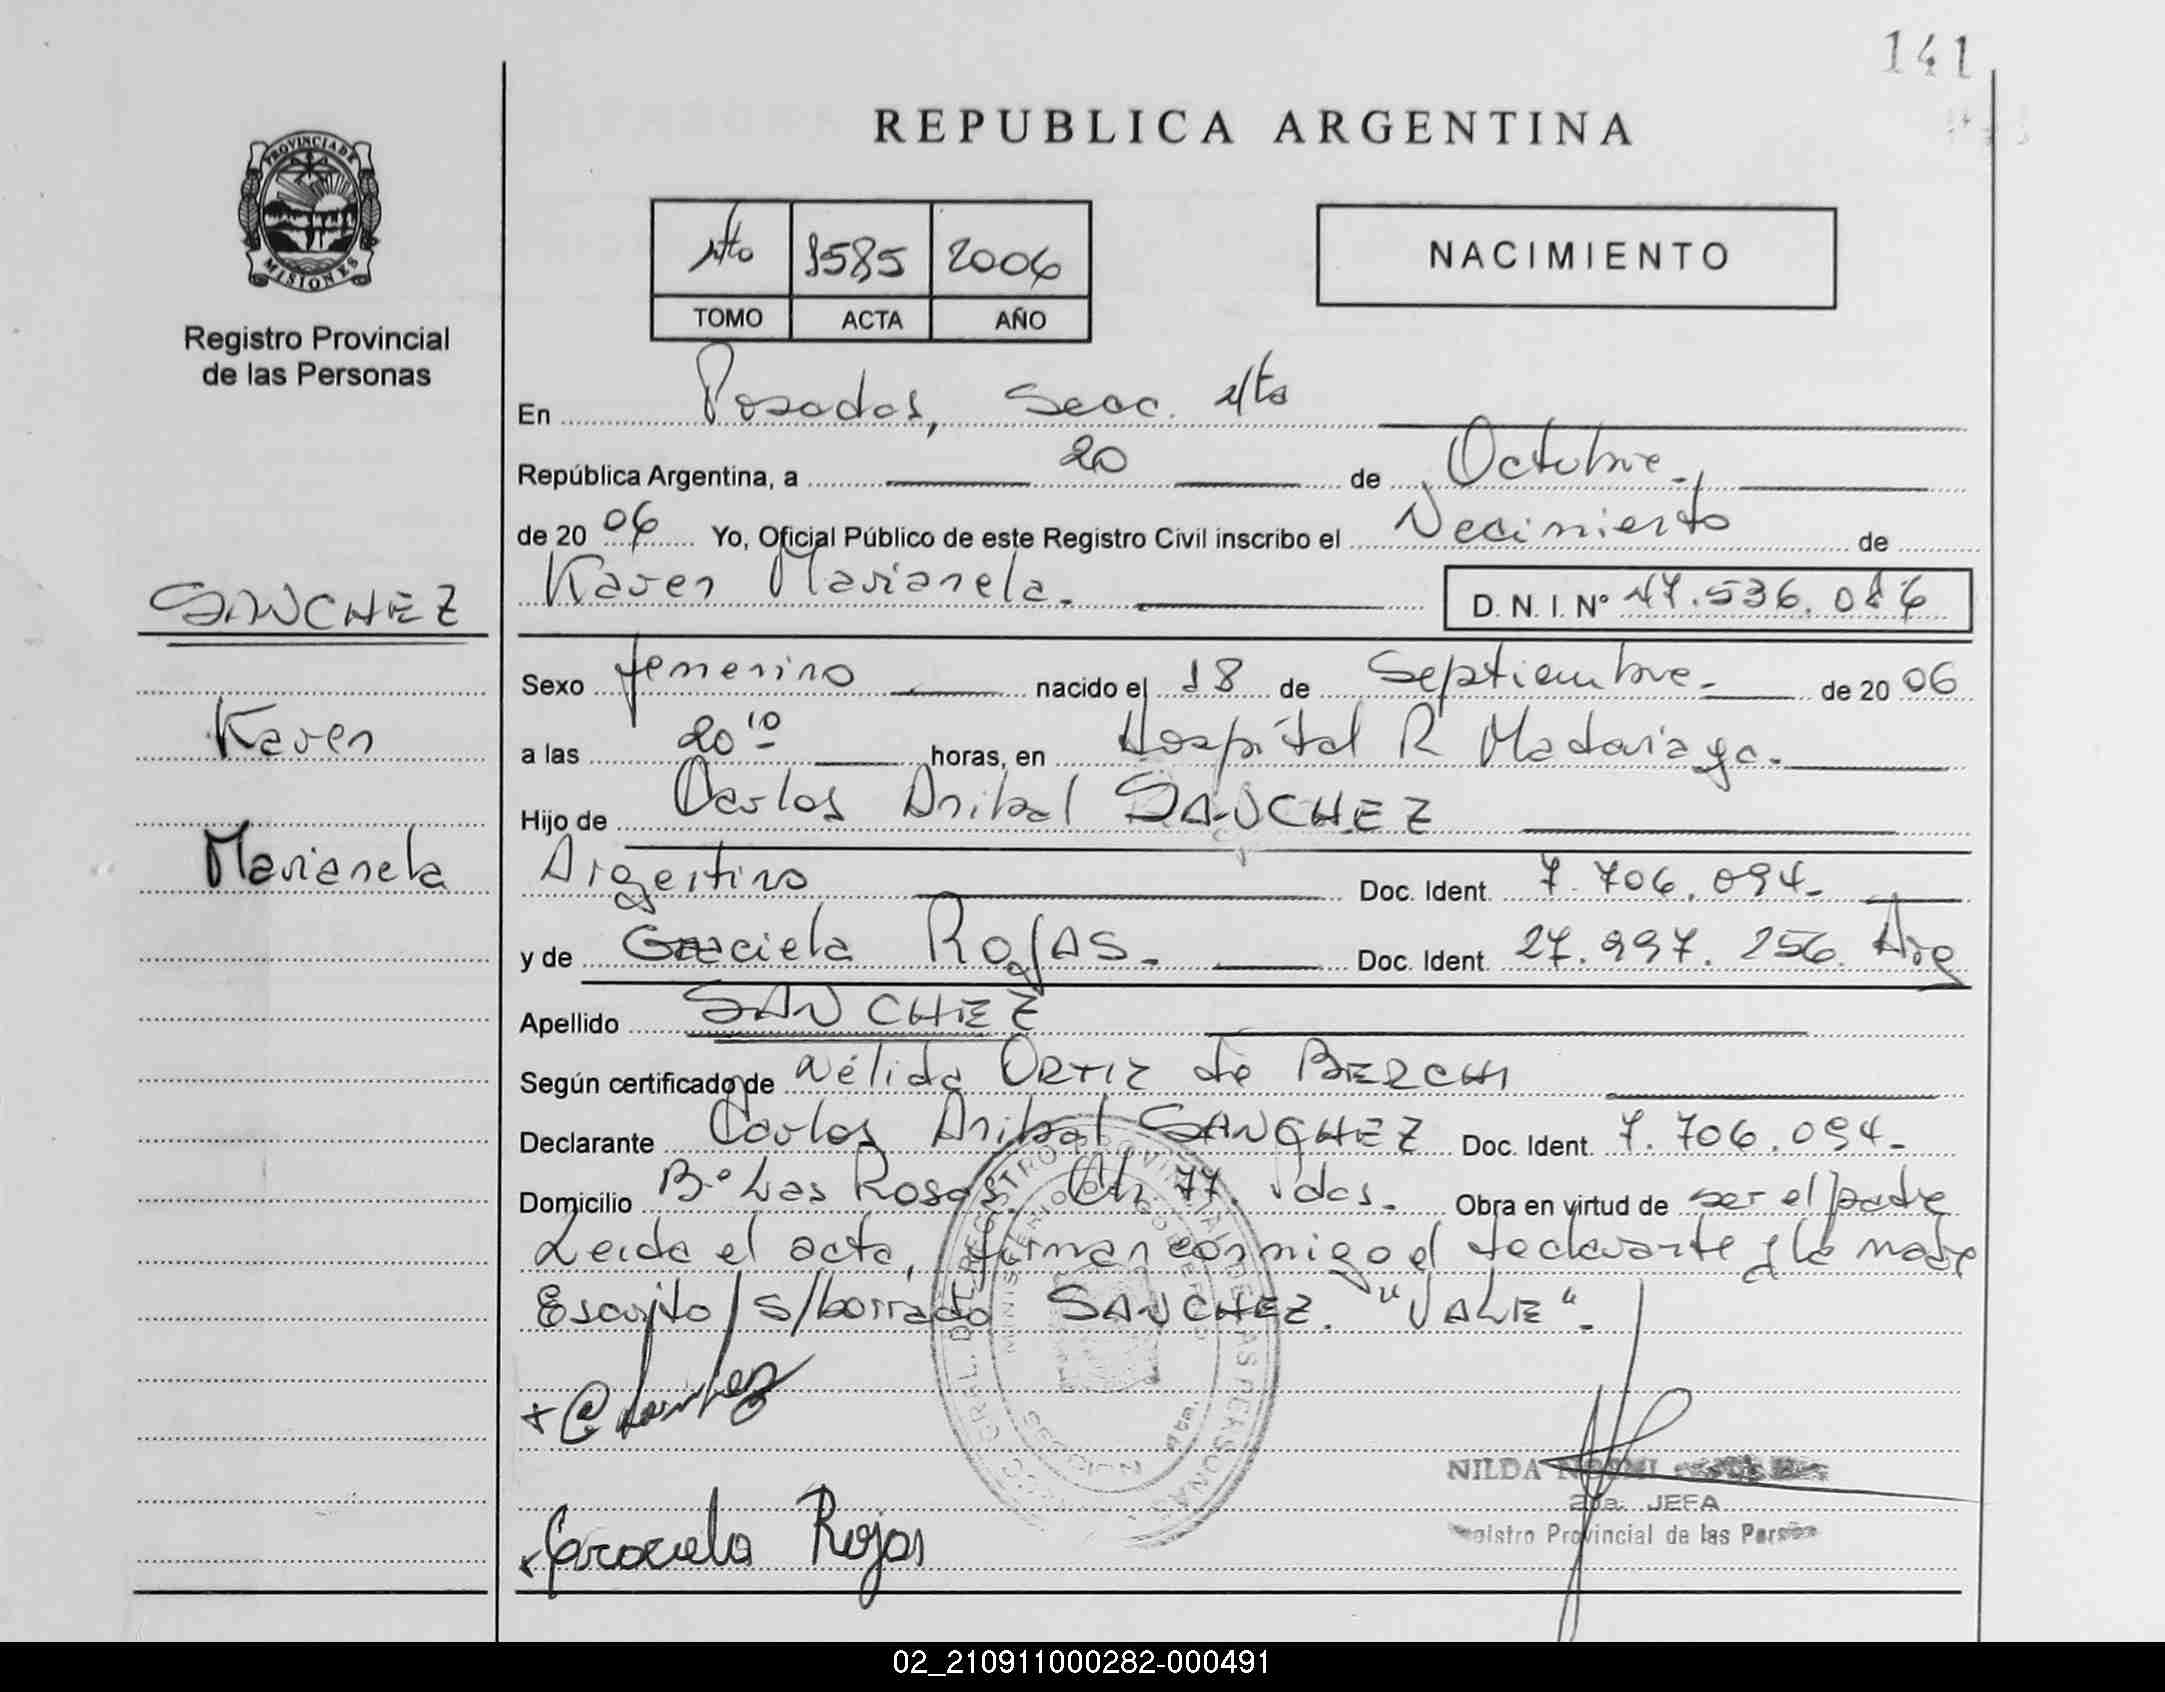 141
REPUBLICA ARGENTINA
PROVINCIA DE
MISIONES
Registro Provincial
de las Personas
4to 1585 2006
TOMO ACTA AÑO
NACIMIENTO
En Posadas, Secc. 4ta
República Argentina, a 20 de Octubre.
de 20 06 Yo, Oficial Público de este Registro Civil inscribo el Nacimiento de
Karen Marianela. D. N. I. Nº 47.536.086
SANCHEZ
Karen
Marianela
Sexo femenino nacido el 18 de Septiembre. de 20 06
a las 20 10 horas, en Hospital R Madariaga.
Hijo de Carlos Anibal SANCHEZ
Argentino Doc. Ident. 7.706.094.
y de Graciela ROJAS. Doc. Ident. 27.997.256. Arg
Apellido SANCHEZ
Según certificado de Nélida ORTIZ de BERCHI
Declarante Carlos Anibal SANCHEZ Doc. Ident. 7.706.094.
Domicilio Bº Las Rosas. Ch. 77. Pdas. Obra en virtud de ser el padre
Leida el acta, firman conmigo el declarante y la madre
Escrito s/borrado SANCHEZ. "VALE".
SECCION 4ta.
+ C Sanchez
NILDA NOEMI
2da. JEFA
Registro Provincial de las Personas
x Graciela Rojas
02_210911000282-000491